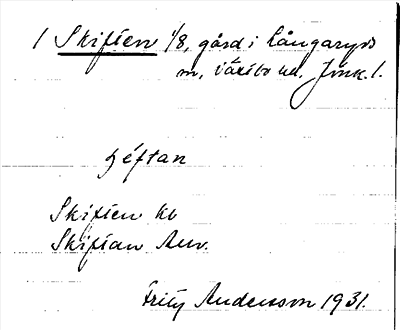 1 Skiften 1/8, gård i Långaryds
m, Västbo hd. Jönk. l.
ʃéftan
Skiften kb
Skiftan Anv.
Fritz Andersson 1931.